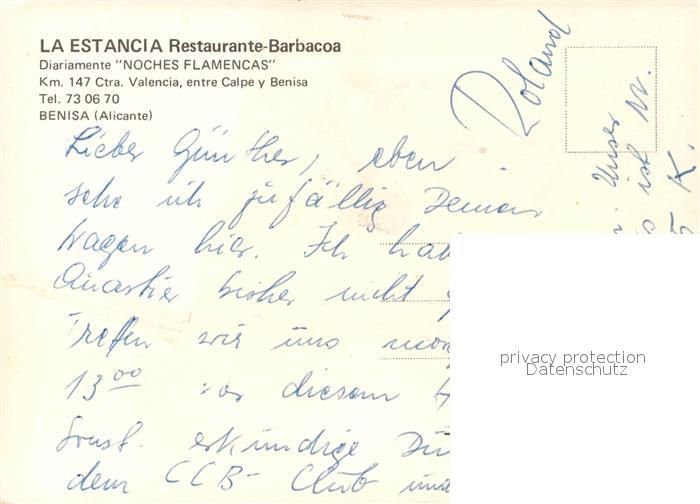 LA ESTANCIA Restaurante-Barbacoa
Diariamente "NOCHES FLAMENCAS"
Km. 147 Ctra. Valencia, entre Calpe y Benisa
Tel. 73 06 70
BENISA (Alicante)
Lieber Günther, eben
sehe ich zufällig Deinen
Wagen hier. Ich hab
Quartier bisher nicht
Treffen wir uns
13 00 vor diesem
Sonst erkundige
dem CCB- Club und
Roland
Unser
ist Nr.
5 K.
privacy protection
Datenschutz